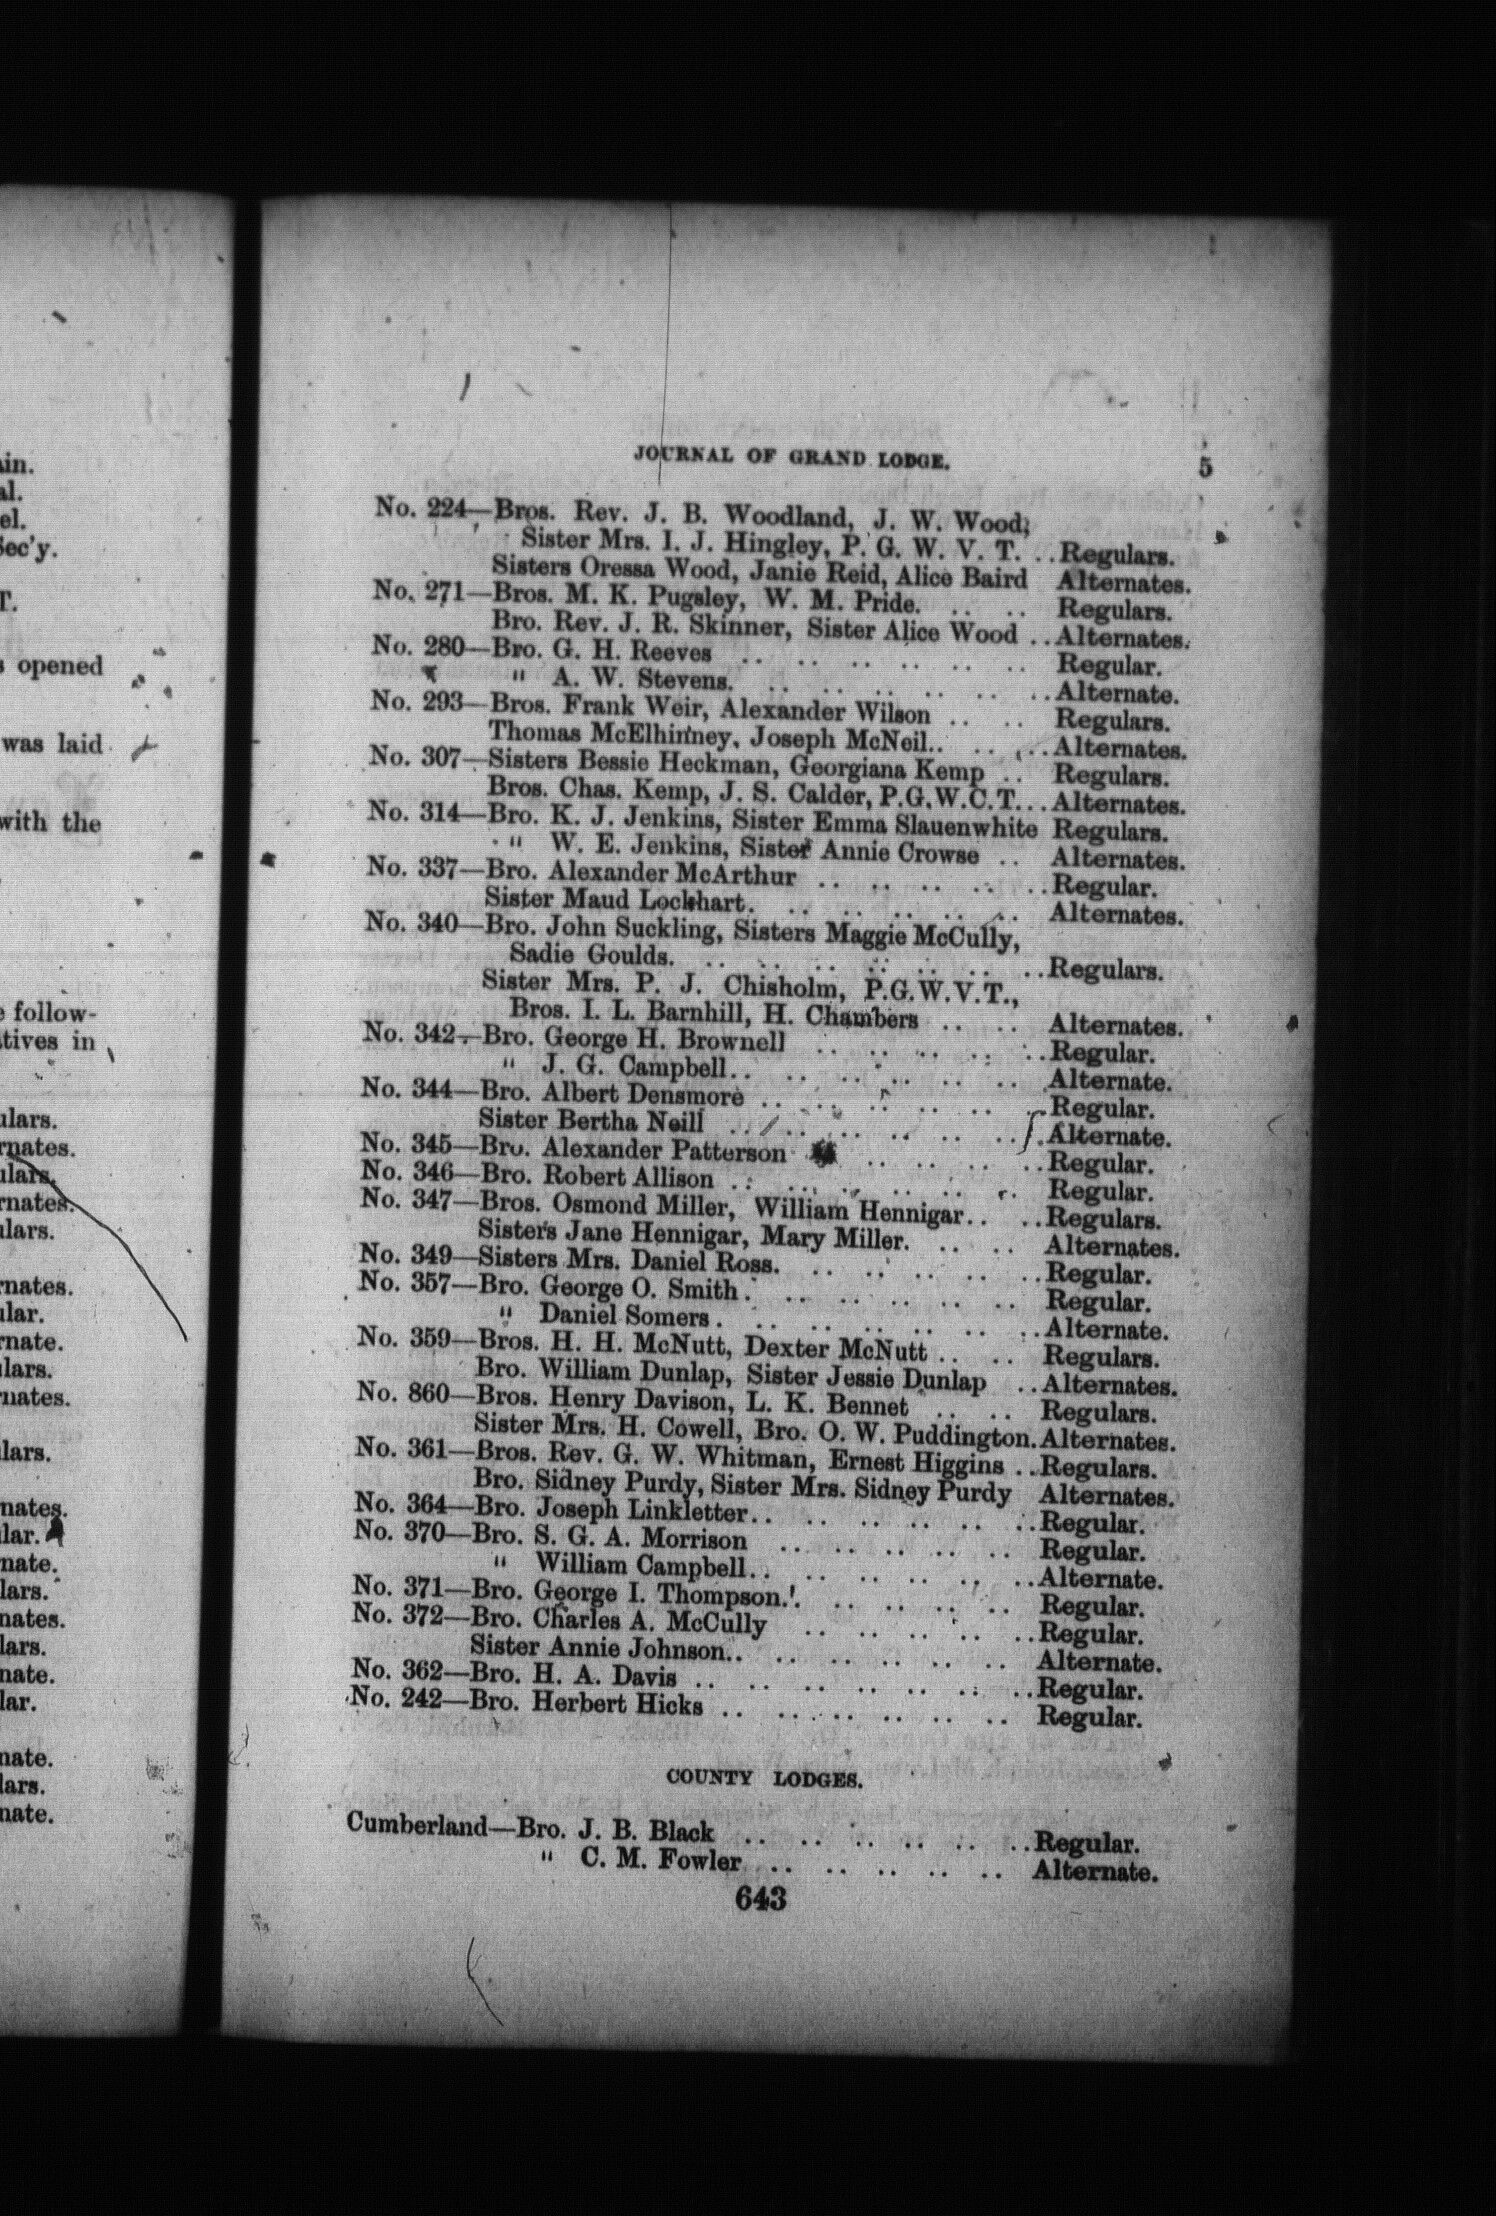 JOURNAL OF GRAND LODGE. 5
No. 224—Bros. Rev. J. B. Woodland, J. W. Wood,
Sister Mrs. I. J. Hingley, P. G. W. V. T. .. Regulars.
Sisters Oressa Wood, Janie Reid, Alice Baird Alternates.
No. 271—Bros. M. K. Pugsley, W. M. Pride. .. .. Regulars.
Bro. Rev. J. R. Skinner, Sister Alice Wood .. Alternates.
No. 280—Bro. G. H. Reeves .. .. .. .. .. .. Regular.
" A. W. Stevens. .. .. .. .. .. .. Alternate.
No. 293—Bros. Frank Weir, Alexander Wilson .. .. Regulars.
Thomas McElhinney, Joseph McNeil.. .. .. Alternates.
No. 307—Sisters Bessie Heckman, Georgiana Kemp .. Regulars.
Bros. Chas. Kemp, J. S. Calder, P.G.W.C.T... Alternates.
No. 314—Bro. K. J. Jenkins, Sister Emma Slauenwhite Regulars.
" W. E. Jenkins, Sister Annie Crowse .. Alternates.
No. 337—Bro. Alexander McArthur .. .. .. .. .. Regular.
Sister Maud Lockhart. .. .. .. .. .. Alternates.
No. 340—Bro. John Suckling, Sisters Maggie McCully,
Sadie Goulds. .. .. .. .. .. .. .. Regulars.
Sister Mrs. P. J. Chisholm, P.G.W.V.T.,
Bros. I. L. Barnhill, H. Chambers .. .. Alternates.
No. 342—Bro. George H. Brownell .. .. .. .. .. Regular.
" J. G. Campbell.. .. .. .. .. .. Alternate.
No. 344—Bro. Albert Densmore .. .. .. .. .. .. Regular.
Sister Bertha Neill .. .. .. .. .. .. Alternate.
No. 345—Bro. Alexander Patterson .. .. .. .. Regular.
No. 346—Bro. Robert Allison .. .. .. .. .. .. Regular.
No. 347—Bros. Osmond Miller, William Hennigar.. .. Regulars.
Sisters Jane Hennigar, Mary Miller. .. .. Alternates.
No. 349—Sisters Mrs. Daniel Ross. .. .. .. .. .. Regular.
No. 357—Bro. George O. Smith . .. .. .. .. .. Regular.
" Daniel Somers . .. .. .. .. .. .. Alternate.
No. 359—Bros. H. H. McNutt, Dexter McNutt .. .. Regulars.
Bro. William Dunlap, Sister Jessie Dunlap .. Alternates.
No. 860—Bros. Henry Davison, L. K. Bennet .. .. Regulars.
Sister Mrs. H. Cowell, Bro. O. W. Puddington. Alternates.
No. 361—Bros. Rev. G. W. Whitman, Ernest Higgins .. Regulars.
Bro. Sidney Purdy, Sister Mrs. Sidney Purdy Alternates.
No. 364—Bro. Joseph Linkletter.. .. .. .. .. .. Regular.
No. 370—Bro. S. G. A. Morrison .. .. .. .. .. Regular.
" William Campbell.. .. .. .. .. .. Alternate.
No. 371—Bro. George I. Thompson.. .. .. .. .. Regular.
No. 372—Bro. Charles A. McCully .. .. .. .. .. Regular.
Sister Annie Johnson.. .. .. .. .. .. Alternate.
No. 362—Bro. H. A. Davis .. .. .. .. .. .. .. Regular.
No. 242—Bro. Herbert Hicks .. .. .. .. .. .. Regular.
COUNTY LODGES.
Cumberland—Bro. J. B. Black .. .. .. .. .. .. Regular.
" C. M. Fowler .. .. .. .. .. Alternate.
643